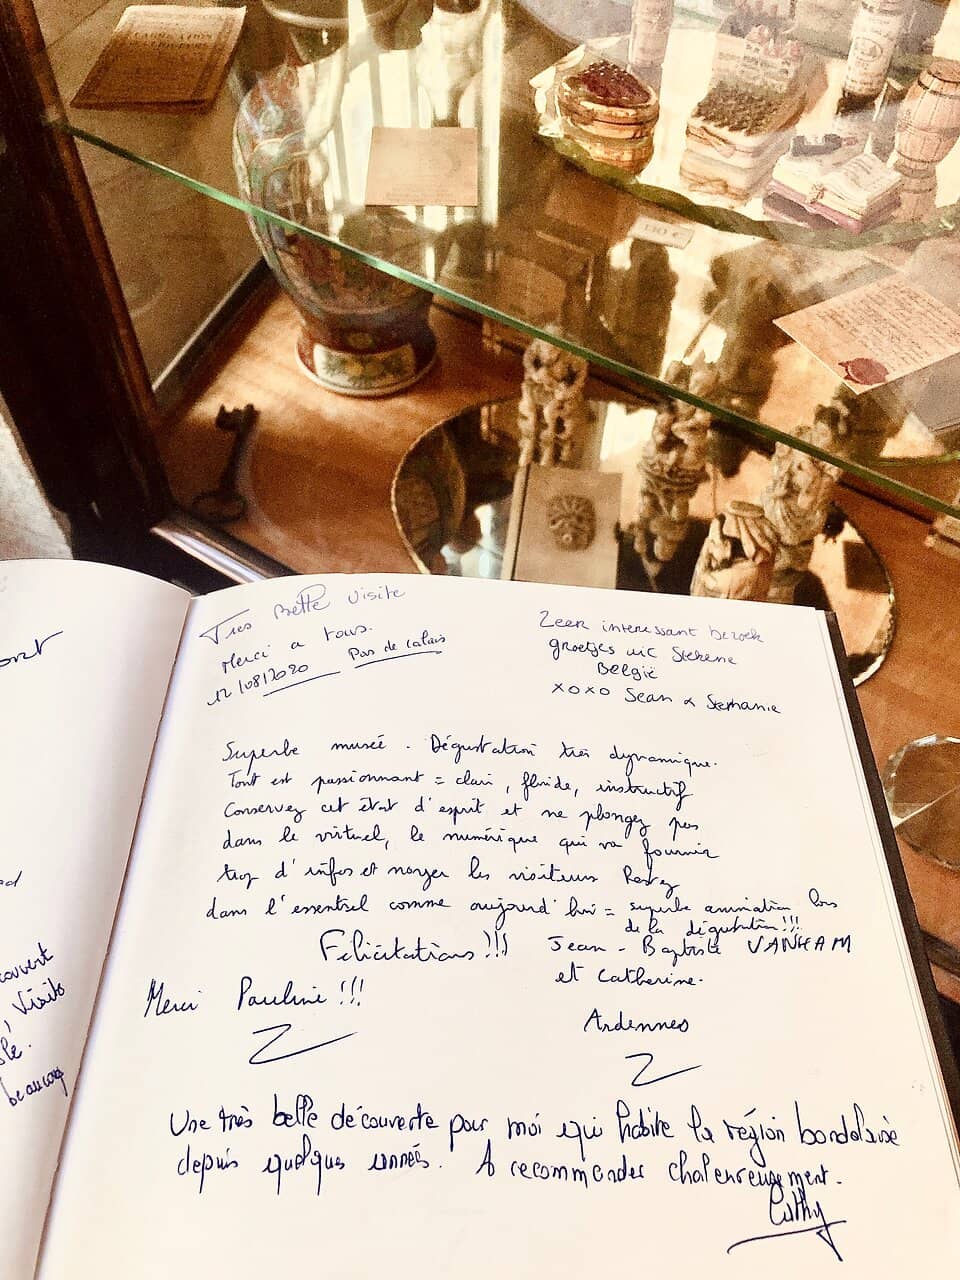 130 €
Très Belle visite
Merci a tous.
12/08/2020 Pas de Calais
Zeer interessant bezoek
groetjes uit Stekene
België
xoxo Sean & Stephanie
Superbe musée. Dégustation très dynamique.
Tout est passionnant = clair, fluide, instructif
Conservez cet état d'esprit et ne plongez pas
dans le virtuel, le numérique qui va fournir
trop d'infos et noyer les visiteurs Restez
dans l'essentiel comme aujourd'hui = superbe animation lors
de la dégustation!!!
Félicitations!!! Jean-Baptiste
et Catherine.
Merci Pauline!!!
Ardennes
Une très belle découverte pour moi qui habite la région bordelaise
depuis quelques années. A recommander chaleureusement.
Cathy
couvert
visite
beaucoup